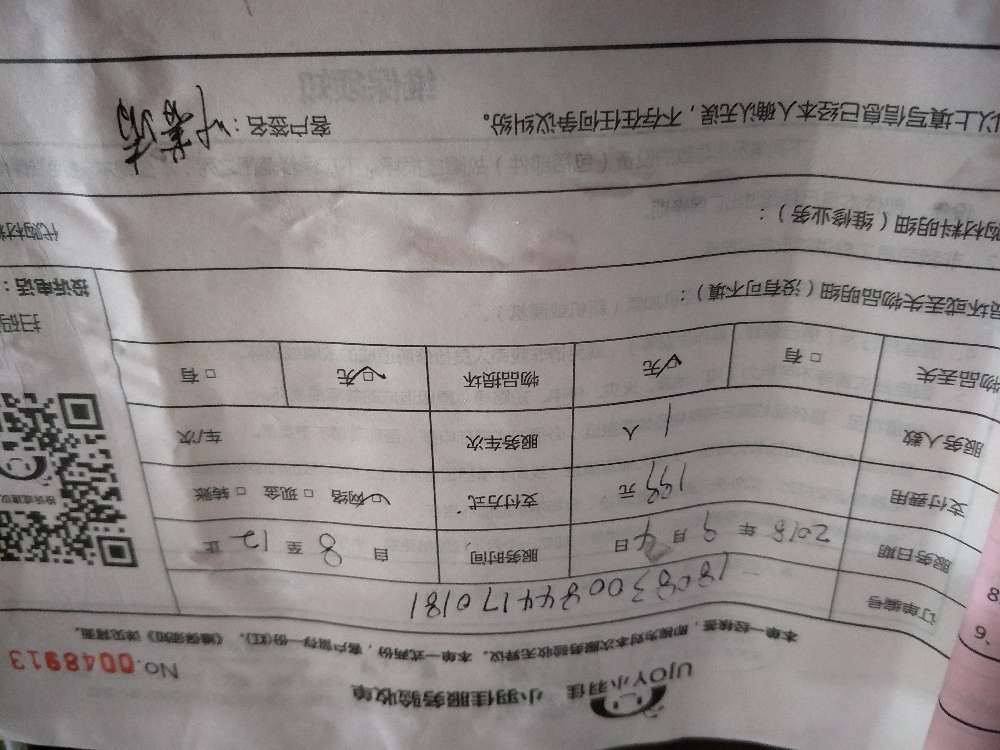 UJOY小羽佳 小羽佳服务验收单
No.0048913
本单一经核签，即视为对本次服务验收无异议。本单一式两份，客户留存一份(红)。《维保须知》详见背面。
订单编号 1808300844170181
服务日期 2018年9月4日 服务时间 自8至12止
支付费用 199元 支付方式 网络 □现金 □转账
服务人数 1人 服务车次 车/次
物品丢失 □有 无 物品损坏 □无 □有
损坏或丢失物品明细（没有可不填）：
扫码
投诉电话：
购材料明细（维修业务）：
代购材料
以上填写信息已经本人确认无误，不存在任何争议纠纷。 客户签名：